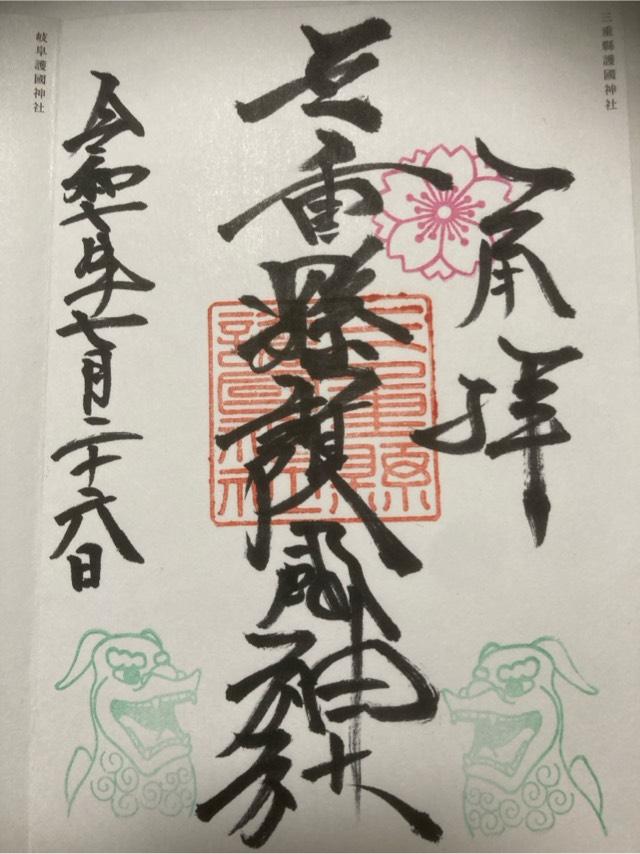 三重縣護國神社
奉拝
三重縣護國神社
三重縣護國神社
令和七年七月二十六日
岐阜護國神社